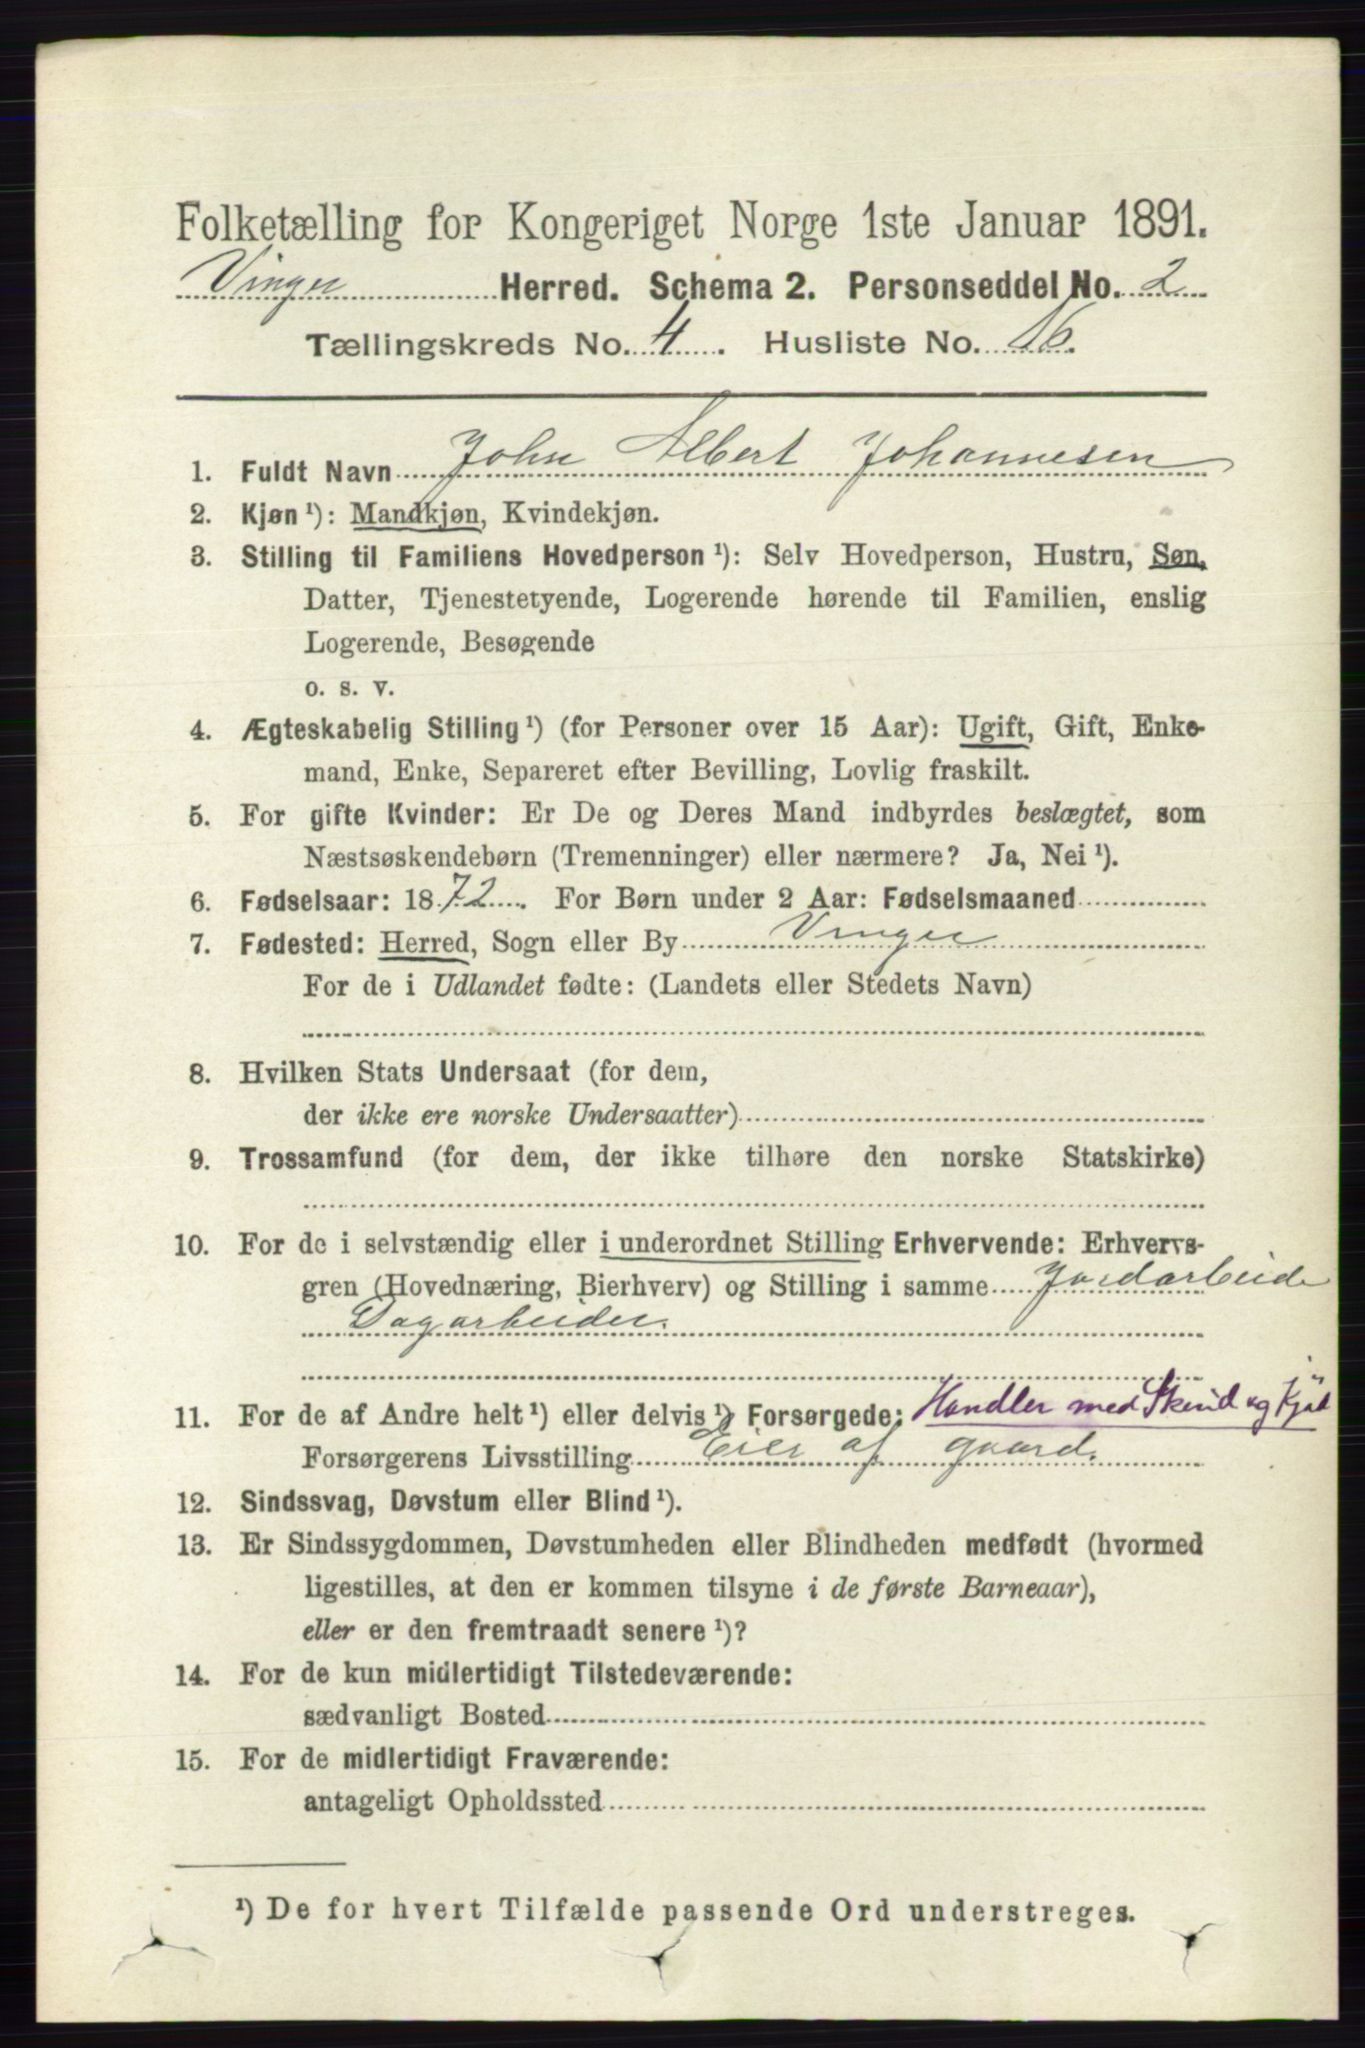 Folketælling for Kongeriget Norge 1ste Januar 1891.
Vinger Herred. Schema 2. Personseddel No. 2
Tællingskreds No. 4. Husliste No. 16.
1. Fuldt Navn John Albert Johannesen
2. Kjøn ¹): Mandkjøn, Kvindekjøn.
3. Stilling til Familiens Hovedperson ¹): Selv Hovedperson, Hustru, Søn,
Datter, Tjenestetyende, Logerende hørende til Familien, enslig
Logerende, Besøgende
o. s. v.
4. Ægteskabelig Stilling ¹) (for Personer over 15 Aar): Ugift, Gift, Enke-
mand, Enke, Separeret efter Bevilling, Lovlig fraskilt.
5. For gifte Kvinder: Er De og Deres Mand indbyrdes beslægtet, som
Næstsøskendebørn (Tremenninger) eller nærmere? Ja, Nei ¹).
6. Fødselsaar: 1872. For Børn under 2 Aar: Fødselsmaaned
7. Fødested: Herred, Sogn eller By Vinger
For de i Udlandet fødte: (Landets eller Stedets Navn)
8. Hvilken Stats Undersaat (for dem,
der ikke ere norske Undersaatter)
9. Trossamfund (for dem, der ikke tilhøre den norske Statskirke)
10. For de i selvstændig eller i underordnet Stilling Erhvervende: Erhvervs-
gren (Hovednæring, Bierhverv) og Stilling i samme Jordarbeide
Dagarbeider.
11. For de af Andre helt ¹) eller delvis ¹) Forsørgede: Handler med Skind og Kjød
Forsørgerens Livsstilling Eier af gaard.
12. Sindssvag, Døvstum eller Blind ¹).
13. Er Sindssygdommen, Døvstumheden eller Blindheden medfødt (hvormed
ligestilles, at den er kommen tilsyne i de første Barneaar),
eller er den fremtraadt senere ¹)?
14. For de kun midlertidigt Tilstedeværende:
sædvanligt Bosted
15. For de midlertidigt Fraværende:
antageligt Opholdssted
¹) De for hvert Tilfælde passende Ord understreges.